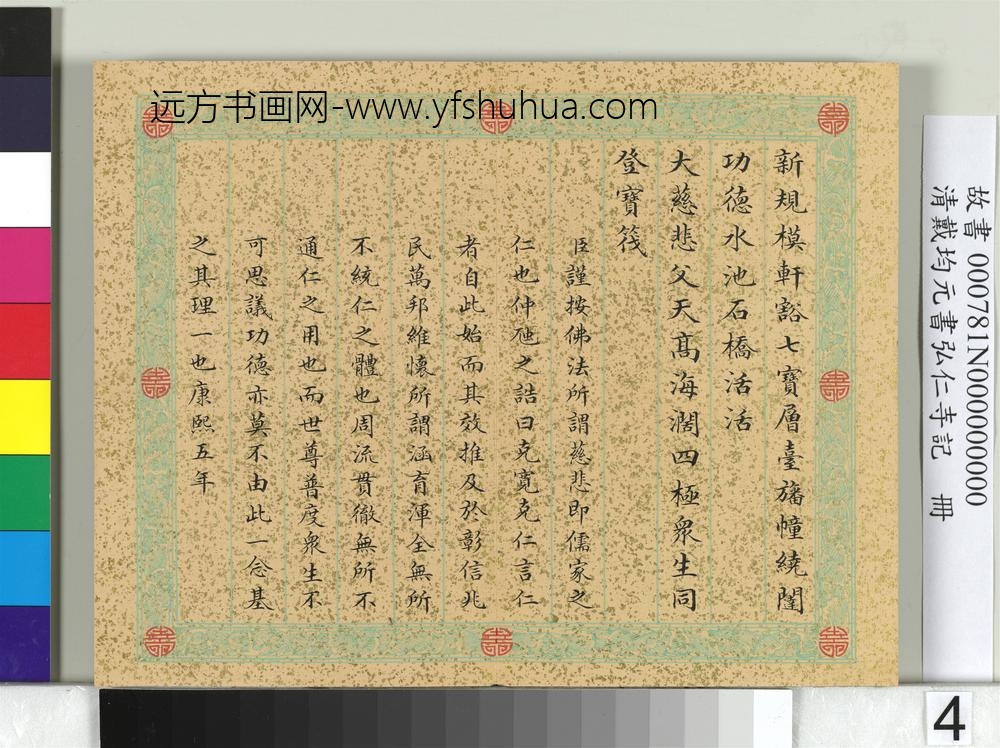 远方书画网-www.yfshuhua.com
新規模軒豁七寶層臺旛幢繞闥
功德水池石橋活活
大慈悲父天髙海濶四極衆生同
登寶筏
臣謹按佛法所謂慈悲即儒家之
仁也仲虺之誥曰克寛克仁言仁
者自此始而其效推及於彰信兆
民萬邦維懷所謂涵育渾全無所
不統仁之體也周流貫徹無所不
通仁之用也而世尊普度衆生不
可思議功德亦莫不由此一念基
之其理一也康熙五年
故書 000781N000000000
清戴均元書弘仁寺記 冊
4